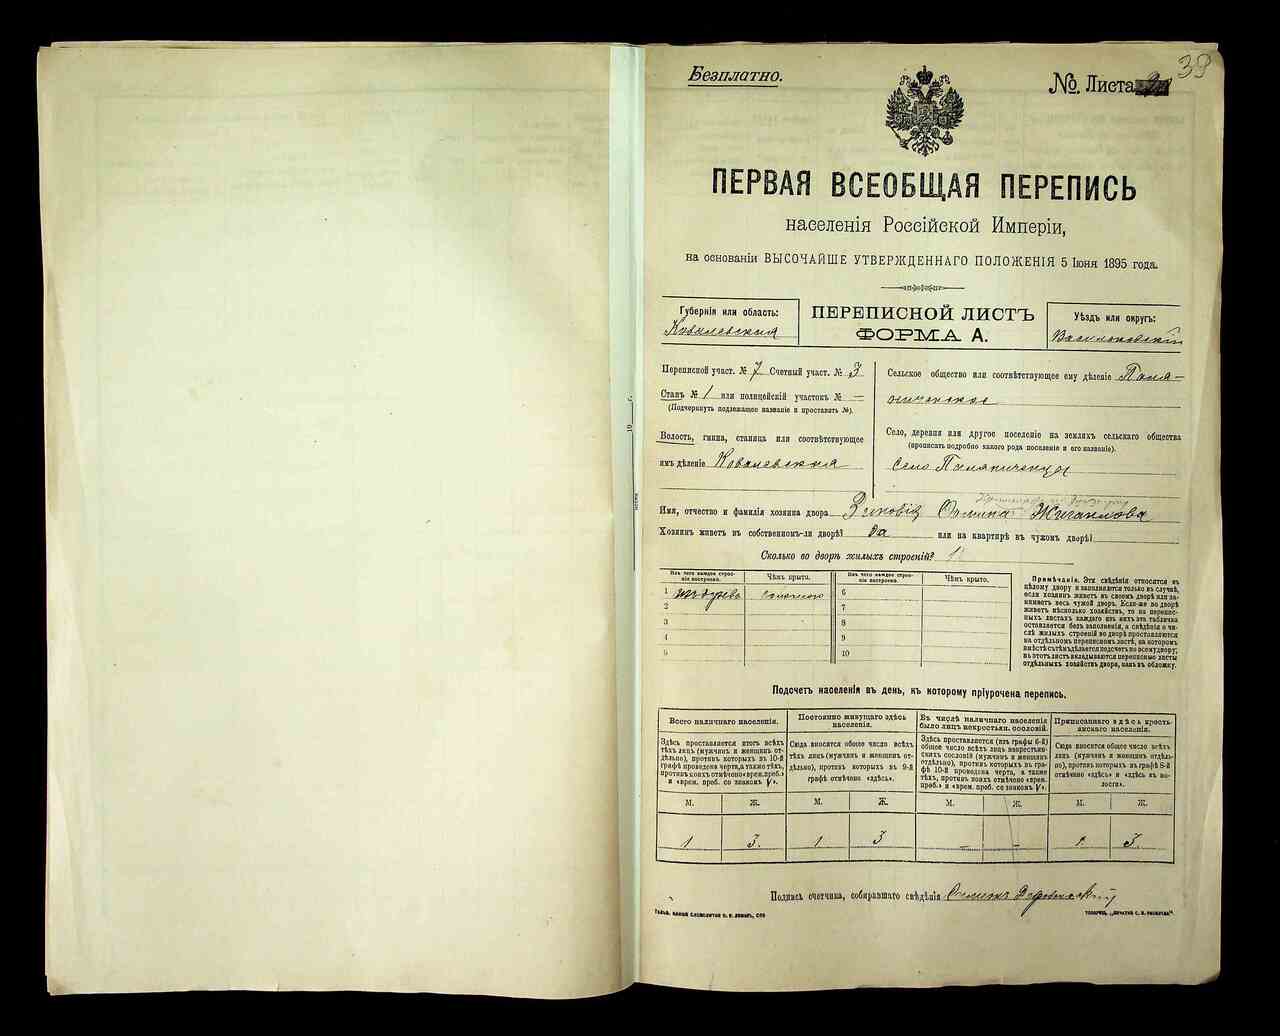 Безплатно.
№. Листа
39
ПЕРВАЯ ВСЕОБЩАЯ ПЕРЕПИСЬ
населенія Россійской Имперіи,
на основаніи ВЫСОЧАЙШЕ УТВЕРЖДЕННАГО ПОЛОЖЕНІЯ 5 Іюня 1895 года.
Губернія или область:
Ковалевская
ПЕРЕПИСНОЙ ЛИСТЪ
ФОРМА А.
Уѣздъ или округъ:
Васильковскій
Переписной участ. № 7 Счетный участ. № 3
Станъ № 1 или полицейскій участокъ № —
(Подчеркнуть подлежащее названіе и проставить №).
Волость, гмина, станица или соотвѣтствующее
имъ дѣленіе Ковалевская
Сельское общество или соотвѣтствующее ему дѣленіе Пала-
ничанское
Село, деревня или другое поселеніе на земляхъ сельскаго общества
(прописать подробно какого рода поселеніе и его названіе).
село Паляничинцы
Имя, отчество и фамилія хозяина двора Зиновія
Хозяинъ живетъ въ собственномъ-ли дворѣ? да или на квартирѣ въ чужомъ дворѣ?
Сколько во дворѣ жилыхъ строеній? 1
Изъ чего каждое строе-
ніе построено.
Чѣмъ крыто.
Изъ чего каждое строе-
ніе построено.
Чѣмъ крыто.
1 изъ дерева соломою 6
2 7
3 8
4 9
5 10
Примѣчанія. Эти свѣдѣнія относятся къ
цѣлому двору и заполняются только въ случаѣ,
если хозяинъ живетъ въ своемъ дворѣ или за-
нимаетъ весь чужой дворъ. Если-же во дворѣ
живетъ нѣсколько хозяйствъ, то на перепис-
ныхъ листахъ каждаго изъ нихъ эта табличка
оставляется безъ заполненія, а свѣдѣнія о чи-
слѣ жилыхъ строеній во дворѣ проставляются
на отдѣльномъ переписномъ листѣ, на которомъ
вмѣстѣ съ тѣмъ дѣлается подсчетъ по всему двору;
въ этотъ листъ вкладываются переписные листы
отдѣльныхъ хозяйствъ двора, какъ въ обложку.
Подсчетъ населенія въ день, къ которому пріурочена перепись.
Всего наличнаго населенія.
Здѣсь проставляется итогъ всѣхъ
тѣхъ лицъ (мужчинъ и женщинъ от-
дѣльно), противъ которыхъ въ 10-й
графѣ проведена черта, а также тѣхъ,
противъ коихъ отмѣчено «врем. преб.»
и «врем. преб. со знакомъ V».
Постоянно живущаго здѣсь
населенія.
Сюда вносится общее число всѣхъ
тѣхъ лицъ (мужчинъ и женщинъ от-
дѣльно), противъ которыхъ въ 9-й
графѣ отмѣчено «здѣсь».
Въ числѣ наличнаго населенія
было лицъ некрестьян. сословій.
Здѣсь проставляется (изъ графы 6-й)
общее число всѣхъ лицъ некрестьян-
скихъ сословій (мужчинъ и женщинъ
отдѣльно), противъ которыхъ въ гра-
фѣ 10-й проведена черта, а также
тѣхъ, противъ коихъ отмѣчено «врем.
преб.» и «врем. преб. со знакомъ V».
Приписаннаго здѣсь кресть-
янскаго населенія.
Сюда вносится общее число всѣхъ
лицъ (мужчинъ и женщинъ отдѣль-
но), противъ которыхъ въ графѣ 8-й
отмѣчено «здѣсь» и «здѣсь въ во-
лости».
М. Ж. М. Ж. М. Ж. М. Ж.
1 3. 1 3 – – 1 3.
Подпись счетчика, собиравшаго свѣдѣнія